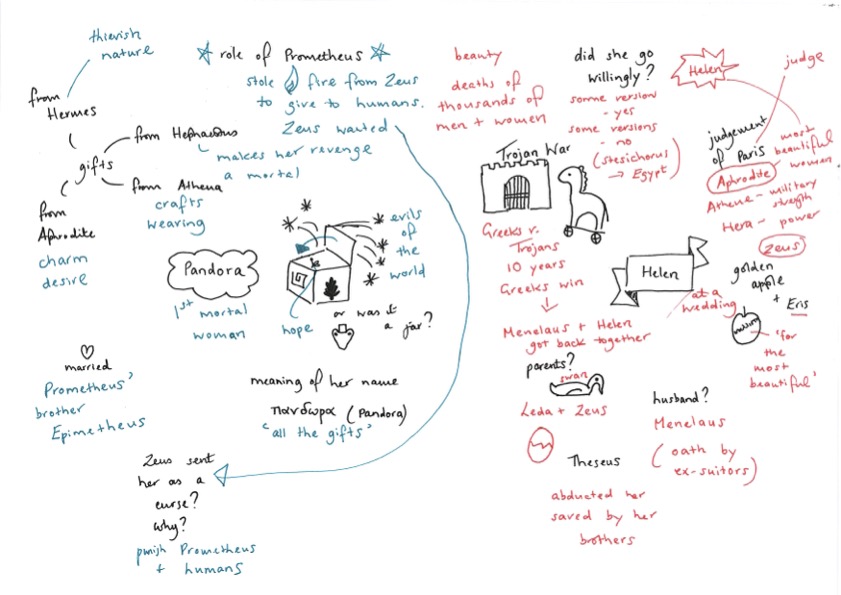 thievish
nature
from
Hermes
gifts
from Hephaestus
makes her revenge
a mortal
from Athena
crafts
weaving
from
Aphrodite
charm
desire
role of Prometheus
stole fire from Zeus
to give to humans.
Zeus wanted
Pandora
1st mortal
woman
evils
of
the
world
hope
or was it
a jar?
married
Prometheus'
brother
Epimetheus
meaning of her name
πανδωρα (Pandora)
'all the gifts'
Zeus sent
her as a
curse?
why?
punish Prometheus
+ humans
beauty
deaths of
thousands of
men + women
did she go
willingly?
some version
- yes
some versions
- no
(stesichorus
→ Egypt)
Helen
judge
judgement
of Paris
most
beautiful
woman
Aphrodite
Athene - military
strength
Hera - power
Zeus
golden
apple
+ Eris
'for
the
most
beautiful'
at a
wedding
Trojan War
Greeks v.
Trojans
10 years
Greeks win
↓
Menelaus + Helen
got back together
Helen
parents?
swan
Leda + Zeus
husband?
Menelaus
(oath by
ex-suitors)
Theseus
abducted her
saved by her
brothers